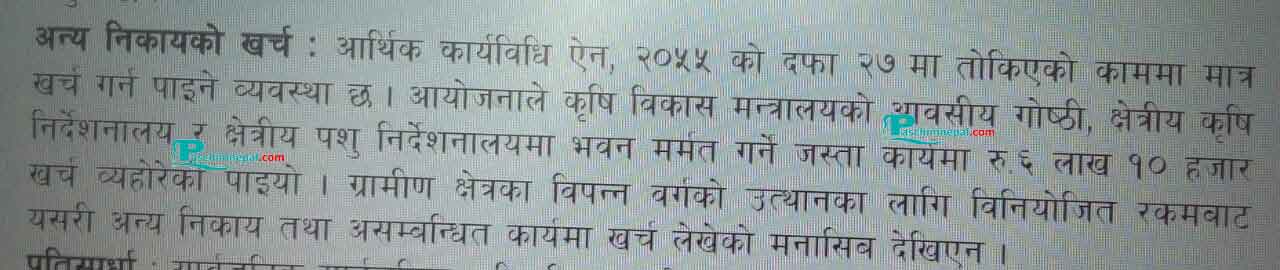 अन्य निकायको खर्च : आर्थिक कार्यविधि ऐन, २०५५ को दफा २७ मा तोकिएको काममा मात्र
खर्च गर्न पाइने व्यवस्था छ । आयोजनाले कृषि विकास मन्त्रालयको आवसीय गोष्ठी, क्षेत्रीय कृषि
Paschimnepal.com
निर्देशनालय र क्षेत्रीय पशु निर्देशनालयमा भवन मर्मत गर्ने जस्ता कार्यमा रु.६ लाख १० हजार
Paschimnepal.com
खर्च व्यहोरेको पाइयो । ग्रामीण क्षेत्रका विपन्न वर्गको उत्थानका लागि विनियोजित रकमबाट
यसरी अन्य निकाय तथा असम्बन्धित कार्यमा खर्च लेखेको मनासिब देखिएन ।